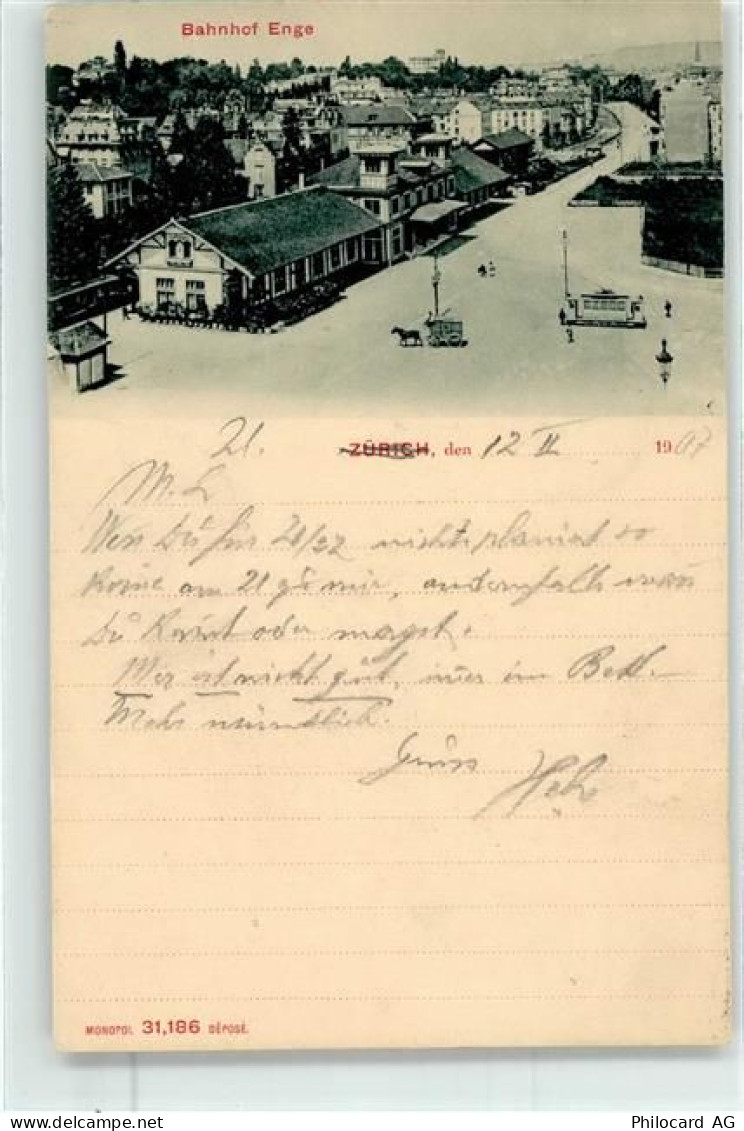 Bahnhof Enge
21. ZÜRICH, den 12 II 1907
M. L
Wen Du für 21/22 nichts planirt so
komme am 21 zu mir, andernfalls wan
Du kannst oder magst.
Mer ist nicht gut, immer im Bett.
Mehr mündlich.
Gruss
MONOPOL 31,186 DÉPOSÉ.
Philocard AG